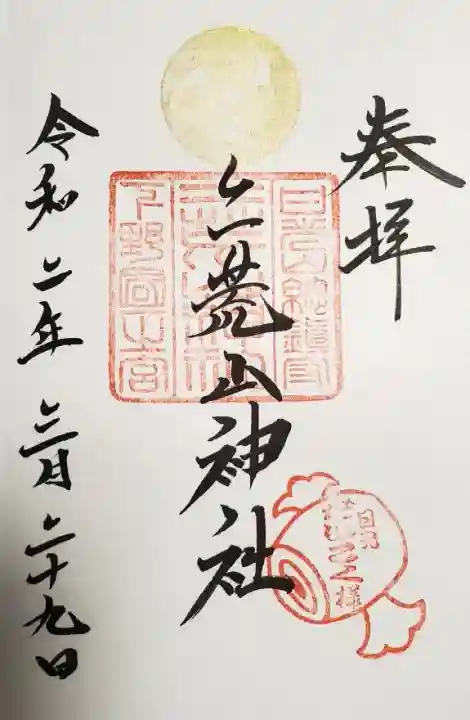 奉拝
日光山総鎮守
二荒山神社
下野国一之宮
二荒山神社
日光
様
令和二年三月二十九日